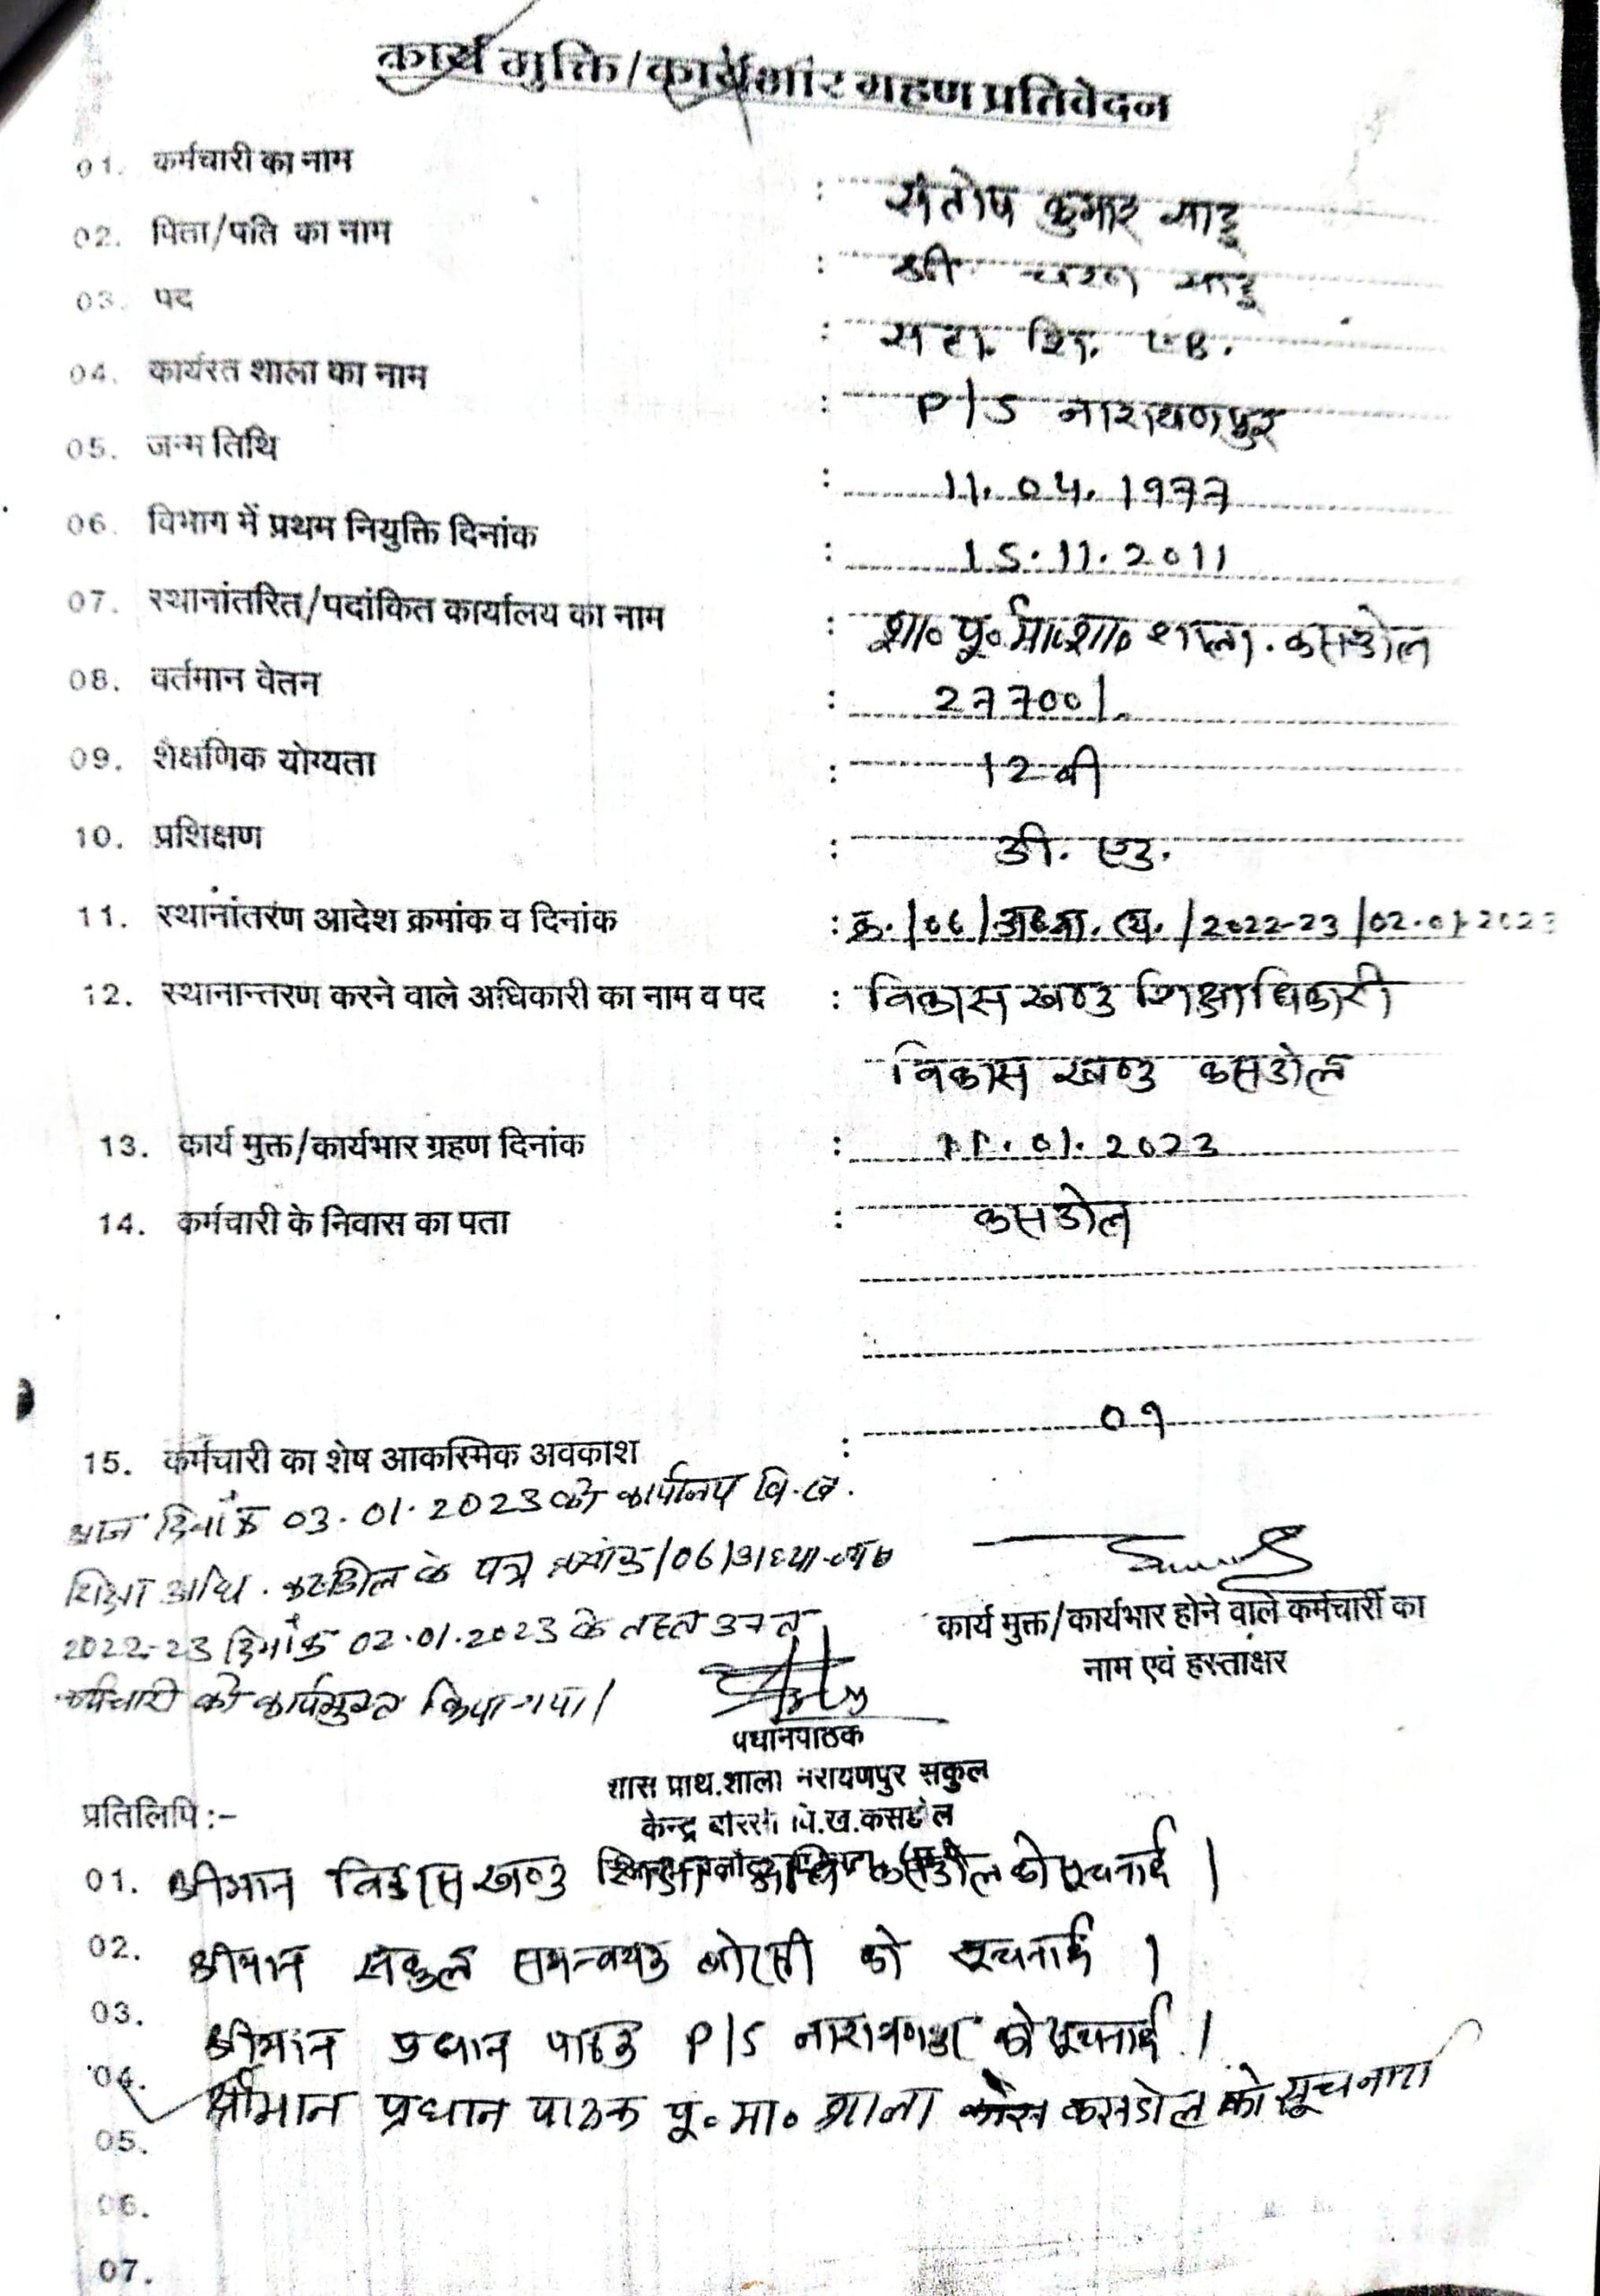 कार्य मुक्ति/कार्यभार ग्रहण प्रतिवेदन
01. कर्मचारी का नाम : संतोष कुमार साहू
02. पिता/पति का नाम : श्री चरण साहू
03. पद : सहा. शि. एलB.
04. कार्यरत शाला का नाम : P/S नारायणपुर
05. जन्म तिथि : 11.04.1977
06. विभाग में प्रथम नियुक्ति दिनांक : 15.11.2011
07. स्थानांतरित/पदांकित कार्यालय का नाम : शा० पू० मा०शा० शाला. कसडोल
08. वर्तमान वेतन : 27700/.
09. शैक्षणिक योग्यता : 12 वी
10. प्रशिक्षण : डी. एड.
11. स्थानांतरण आदेश क्रमांक व दिनांक : क्र./06/अध्या. व्य./2022-23/02.01.2023
12. स्थानान्तरण करने वाले अधिकारी का नाम व पद : विकास खण्ड शिक्षाधिकारी
विकास खण्ड कसडोल
13. कार्य मुक्त/कार्यभार ग्रहण दिनांक : 01.2023
14. कर्मचारी के निवास का पता : कसडोल
15. कर्मचारी का शेष आकस्मिक अवकाश : 09
आज दिनांक 03.01.2023 को कार्यालय वि.ख.
शिक्षा अधि. कसडोल के पत्र क्रमांक/06/अध्या-व्यव
2022-23 दिनांक 02.01.2023 के तहत उक्त
कर्मचारी को कार्यमुक्त किया गया।
कार्य मुक्त/कार्यभार होने वाले कर्मचारी का
नाम एवं हस्ताक्षर
पधानपाठक
शास प्राथ.शाला नरायणपुर सकुल
केन्द्र बोरसी वि.ख.कसडोल
प्रतिलिपि :-
01. श्रीमान विकास खण्ड शिक्षा अधि कसडोल को सूचनार्थ।
02. श्रीमान संकुल समन्वयक बोरसी को सूचनार्थ।
03. श्रीमान प्रधान पाठक P/S नारायणपुर को सूचनार्थ।
04. श्रीमान प्रधान पाठक पू० मा० शाला कसडोल को सूचनार्थ
05.
06.
07.